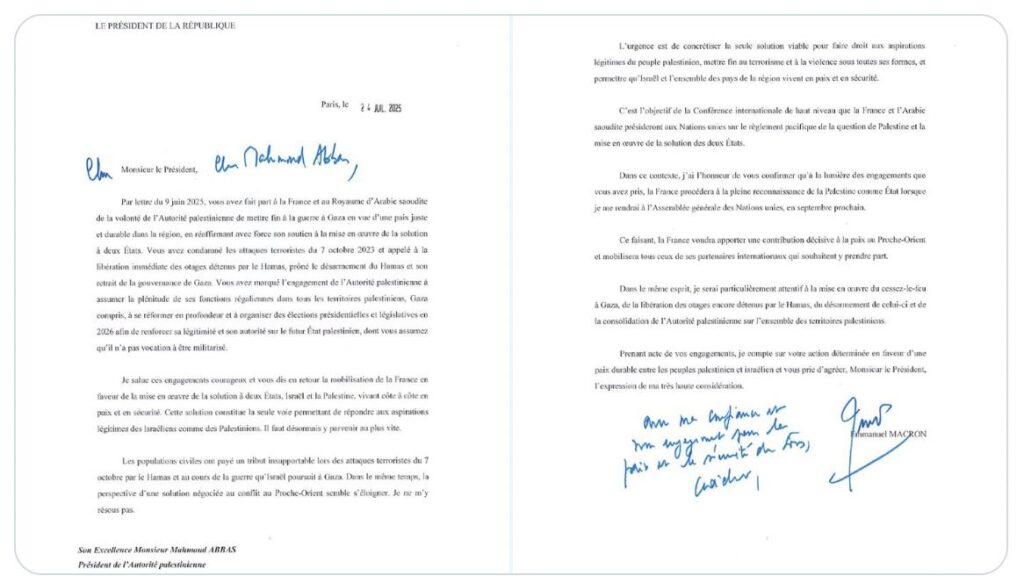 LE PRÉSIDENT DE LA RÉPUBLIQUE
Paris, le 24 JUL. 2025
Cher Monsieur le Président, Cher Mahmoud Abbas,
Par lettre du 9 juin 2025, vous avez fait part à la France et au Royaume d'Arabie saoudite
de la volonté de l'Autorité palestinienne de mettre fin à la guerre à Gaza en vue d'une paix juste
et durable dans la région, en réaffirmant avec force son soutien à la mise en œuvre de la solution
à deux États. Vous avez condamné les attaques terroristes du 7 octobre 2023 et appelé à la
libération immédiate des otages détenus par le Hamas, prôné le désarmement du Hamas et son
retrait de la gouvernance de Gaza. Vous avez marqué l'engagement de l'Autorité palestinienne à
assumer la plénitude de ses fonctions régaliennes dans tous les territoires palestiniens, Gaza
compris, à se réformer en profondeur et à organiser des élections présidentielles et législatives en
2026 afin de renforcer sa légitimité et son autorité sur le futur État palestinien, dont vous assumez
qu'il n'a pas vocation à être militarisé.
Je salue ces engagements courageux et vous dis en retour la mobilisation de la France en
faveur de la mise en œuvre de la solution à deux États, Israël et la Palestine, vivant côte à côte en
paix et en sécurité. Cette solution constitue la seule voie permettant de répondre aux aspirations
légitimes des Israéliens comme des Palestiniens. Il faut désormais y parvenir au plus vite.
Les populations civiles ont payé un tribut insupportable lors des attaques terroristes du 7
octobre par le Hamas et au cours de la guerre qu'Israël poursuit à Gaza. Dans le même temps, la
perspective d'une solution négociée au conflit au Proche-Orient semble s'éloigner. Je ne m'y
résous pas.
Son Excellence Monsieur Mahmoud ABBAS
Président de l'Autorité palestinienne
L'urgence est de concrétiser la seule solution viable pour faire droit aux aspirations
légitimes du peuple palestinien, mettre fin au terrorisme et à la violence sous toutes ses formes, et
permettre qu'Israël et l'ensemble des pays de la région vivent en paix et en sécurité.
C'est l'objectif de la Conférence internationale de haut niveau que la France et l'Arabie
saoudite présideront aux Nations unies sur le règlement pacifique de la question de Palestine et la
mise en œuvre de la solution des deux États.
Dans ce contexte, j'ai l'honneur de vous confirmer qu'à la lumière des engagements que
vous avez pris, la France procédera à la pleine reconnaissance de la Palestine comme État lorsque
je me rendrai à l'Assemblée générale des Nations unies, en septembre prochain.
Ce faisant, la France voudra apporter une contribution décisive à la paix au Proche-Orient
et mobilisera tous ceux de ses partenaires internationaux qui souhaitent y prendre part.
Dans le même esprit, je serai particulièrement attentif à la mise en œuvre du cessez-le-feu
à Gaza, de la libération des otages encore détenus par le Hamas, du désarmement de celui-ci et de
la consolidation de l'Autorité palestinienne sur l'ensemble des territoires palestiniens.
Prenant acte de vos engagements, je compte sur votre action déterminée en faveur d'une
paix durable entre les peuples palestinien et israélien et vous prie d'agréer, Monsieur le Président,
l'expression de ma très haute considération.
avec ma confiance et
mon engagement pour la
paix et la sécurité de tous,
Emmanuel MACRON